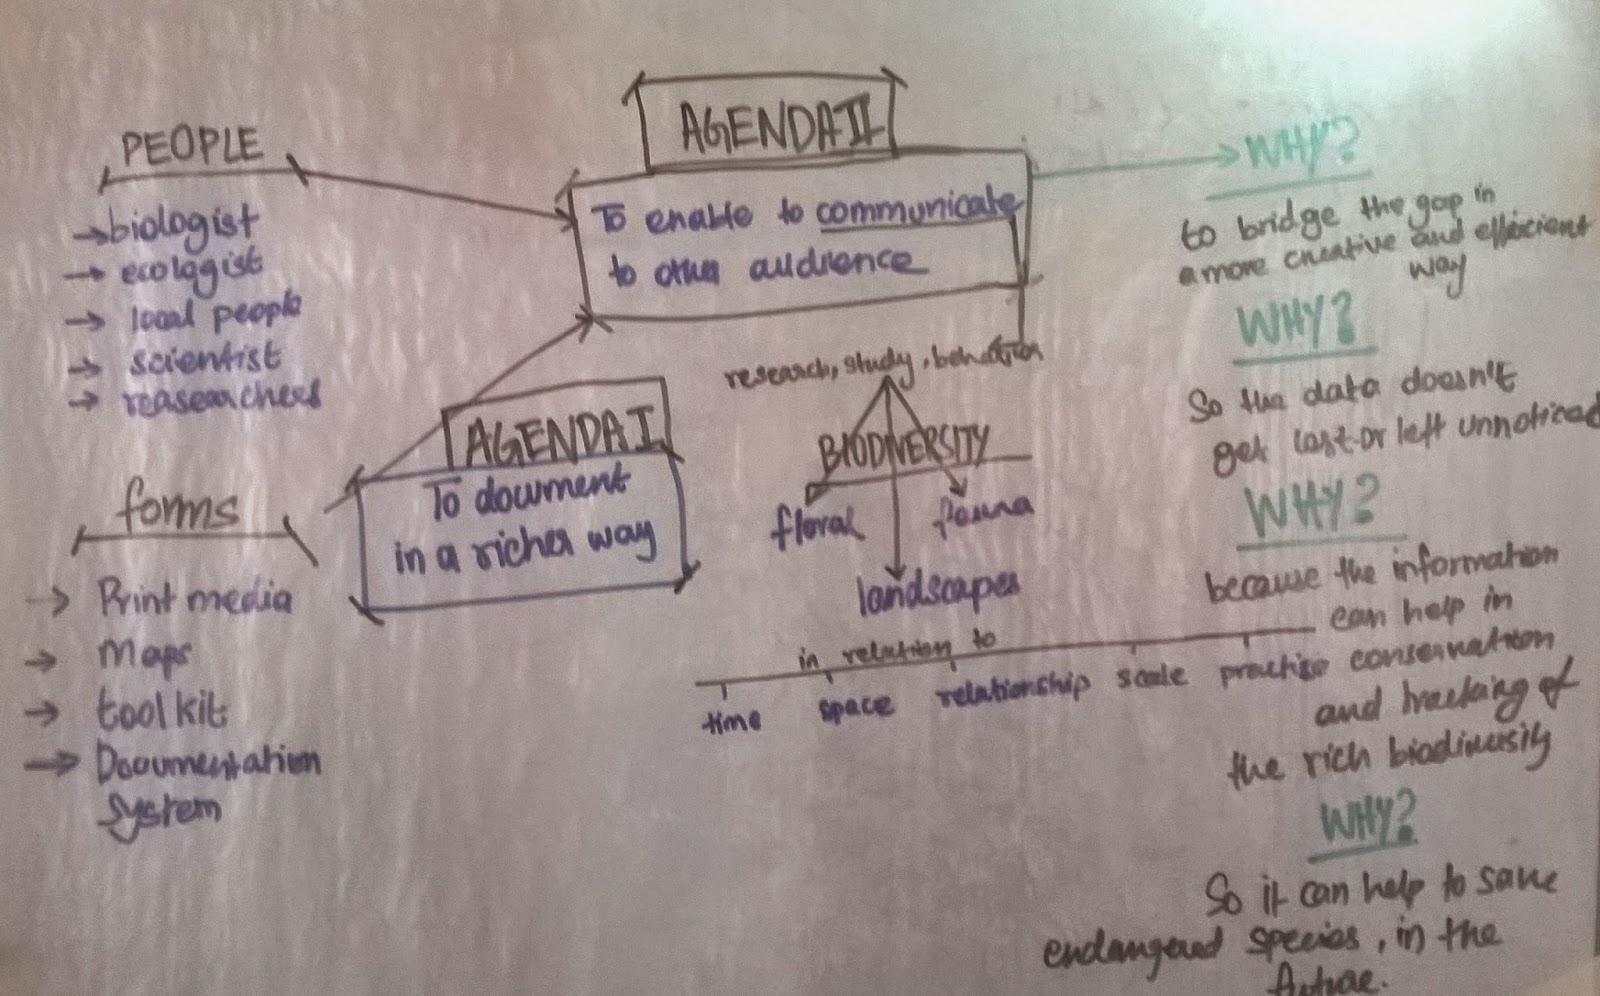 PEOPLE
→ biologist
→ ecologist
→ local people
→ scientist
→ reasearchers
forms
→ Print media
→ Maps
→ toolkit
→ Documentation
system
AGENDA II
To enable to communicate
to other audience
AGENDA I
To document
in a richer way
research, study, behaviour
BIODIVERSITY
floral
fauna
landscapes
in relation to
time space relationship scale practise
WHY?
to bridge the gap in
a more creative and efficient
way
WHY?
So the data doesn't
get lost or left unnoticed
WHY?
because the information
can help in
conservation
and tracking of
the rich biodiversity
WHY?
So it can help to save
endangered species, in the
future.